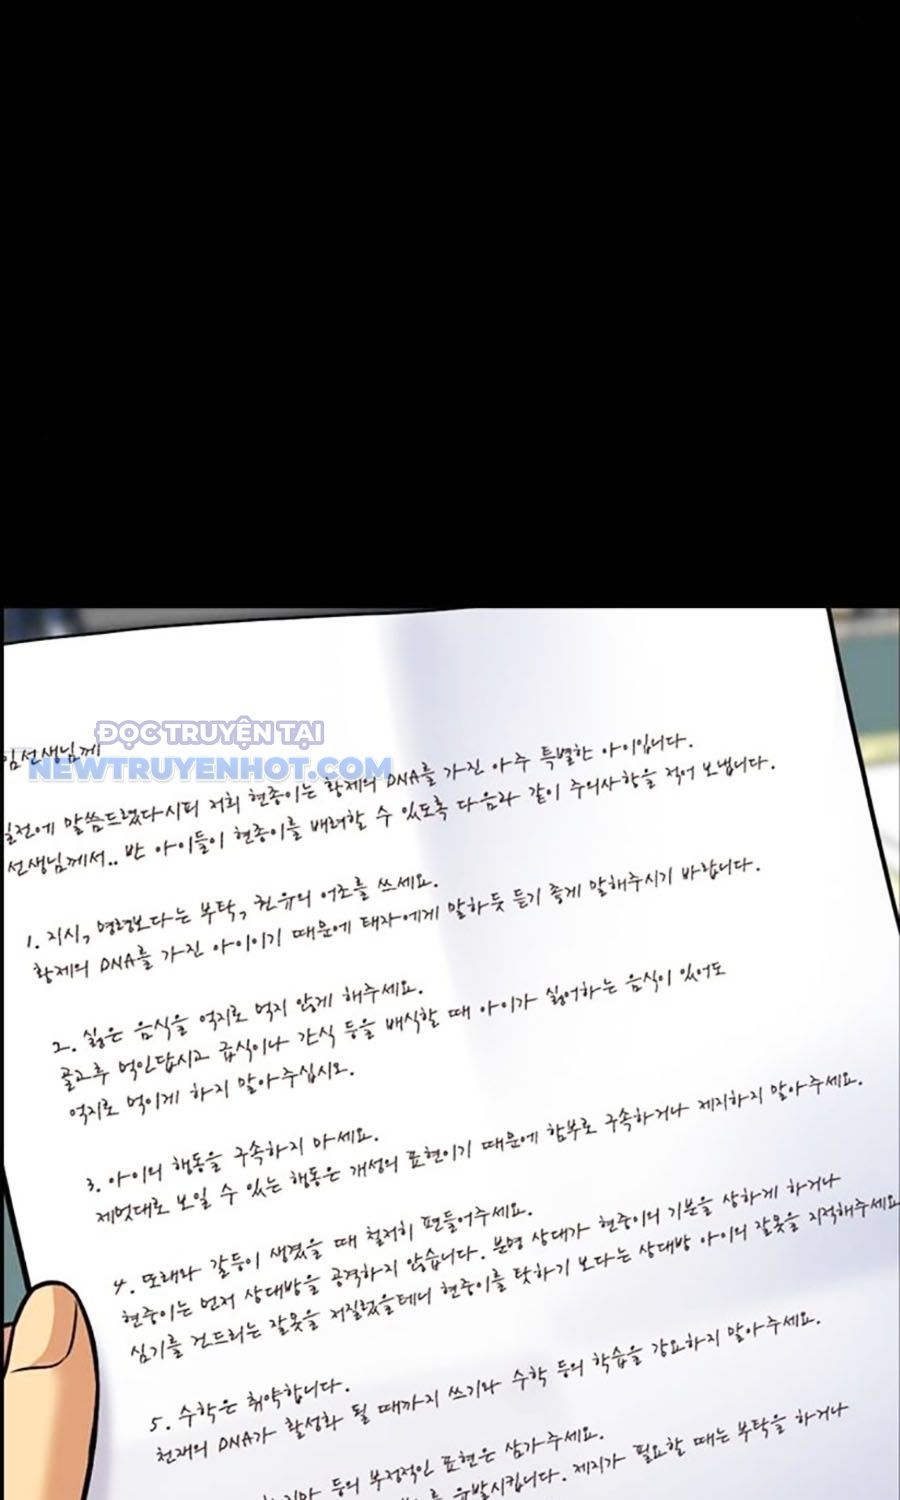 ĐỌC TRUYỆN TẠI
NEWTRUYENHOT.COM
임선생님께
일전에 말씀드렸다시피 저희 현종이는 황제의 DNA를 가진 아주 특별한 아이입니다.
선생님께서.. 반 아이들이 현종이를 배려할 수 있도록 다음과 같이 주의사항을 적어 보냅니다.
1. 지시, 명령보다는 부탁, 권유의 어조를 쓰세요.
황제의 DNA를 가진 아이이기 때문에 태자에게 말하듯 듣기 좋게 말해주시기 바랍니다.
2. 싫은 음식을 억지로 먹지 않게 해주세요.
골고루 먹인답시고 급식이나 간식 등을 배식할 때 아이가 싫어하는 음식이 있어도
억지로 먹이게 하지 말아주십시오.
3. 아이의 행동을 구속하지 마세요.
제멋대로 보일 수 있는 행동은 개성의 표현이기 때문에 함부로 구속하거나 제지하지 말아주세요.
4. 또래와 갈등이 생겼을 때 철저히 편들어주세요.
현종이는 먼저 상대방을 공격하지 않습니다. 분명 상대가 현종이의 기분을 상하게 하거나
심기를 건드리는 잘못을 저질렀을테니 현종이를 탓하기 보다는 상대방 아이의 잘못을 지적해주세요
5. 수학은 취약합니다.
천재의 DNA가 활성화 될 때까지 쓰기와 수학 등의 학습을 강요하지 말아주세요.
등의 부정적인 표현은 삼가주세요.
유발시킵니다. 제지가 필요할 때는 부탁을 하거나